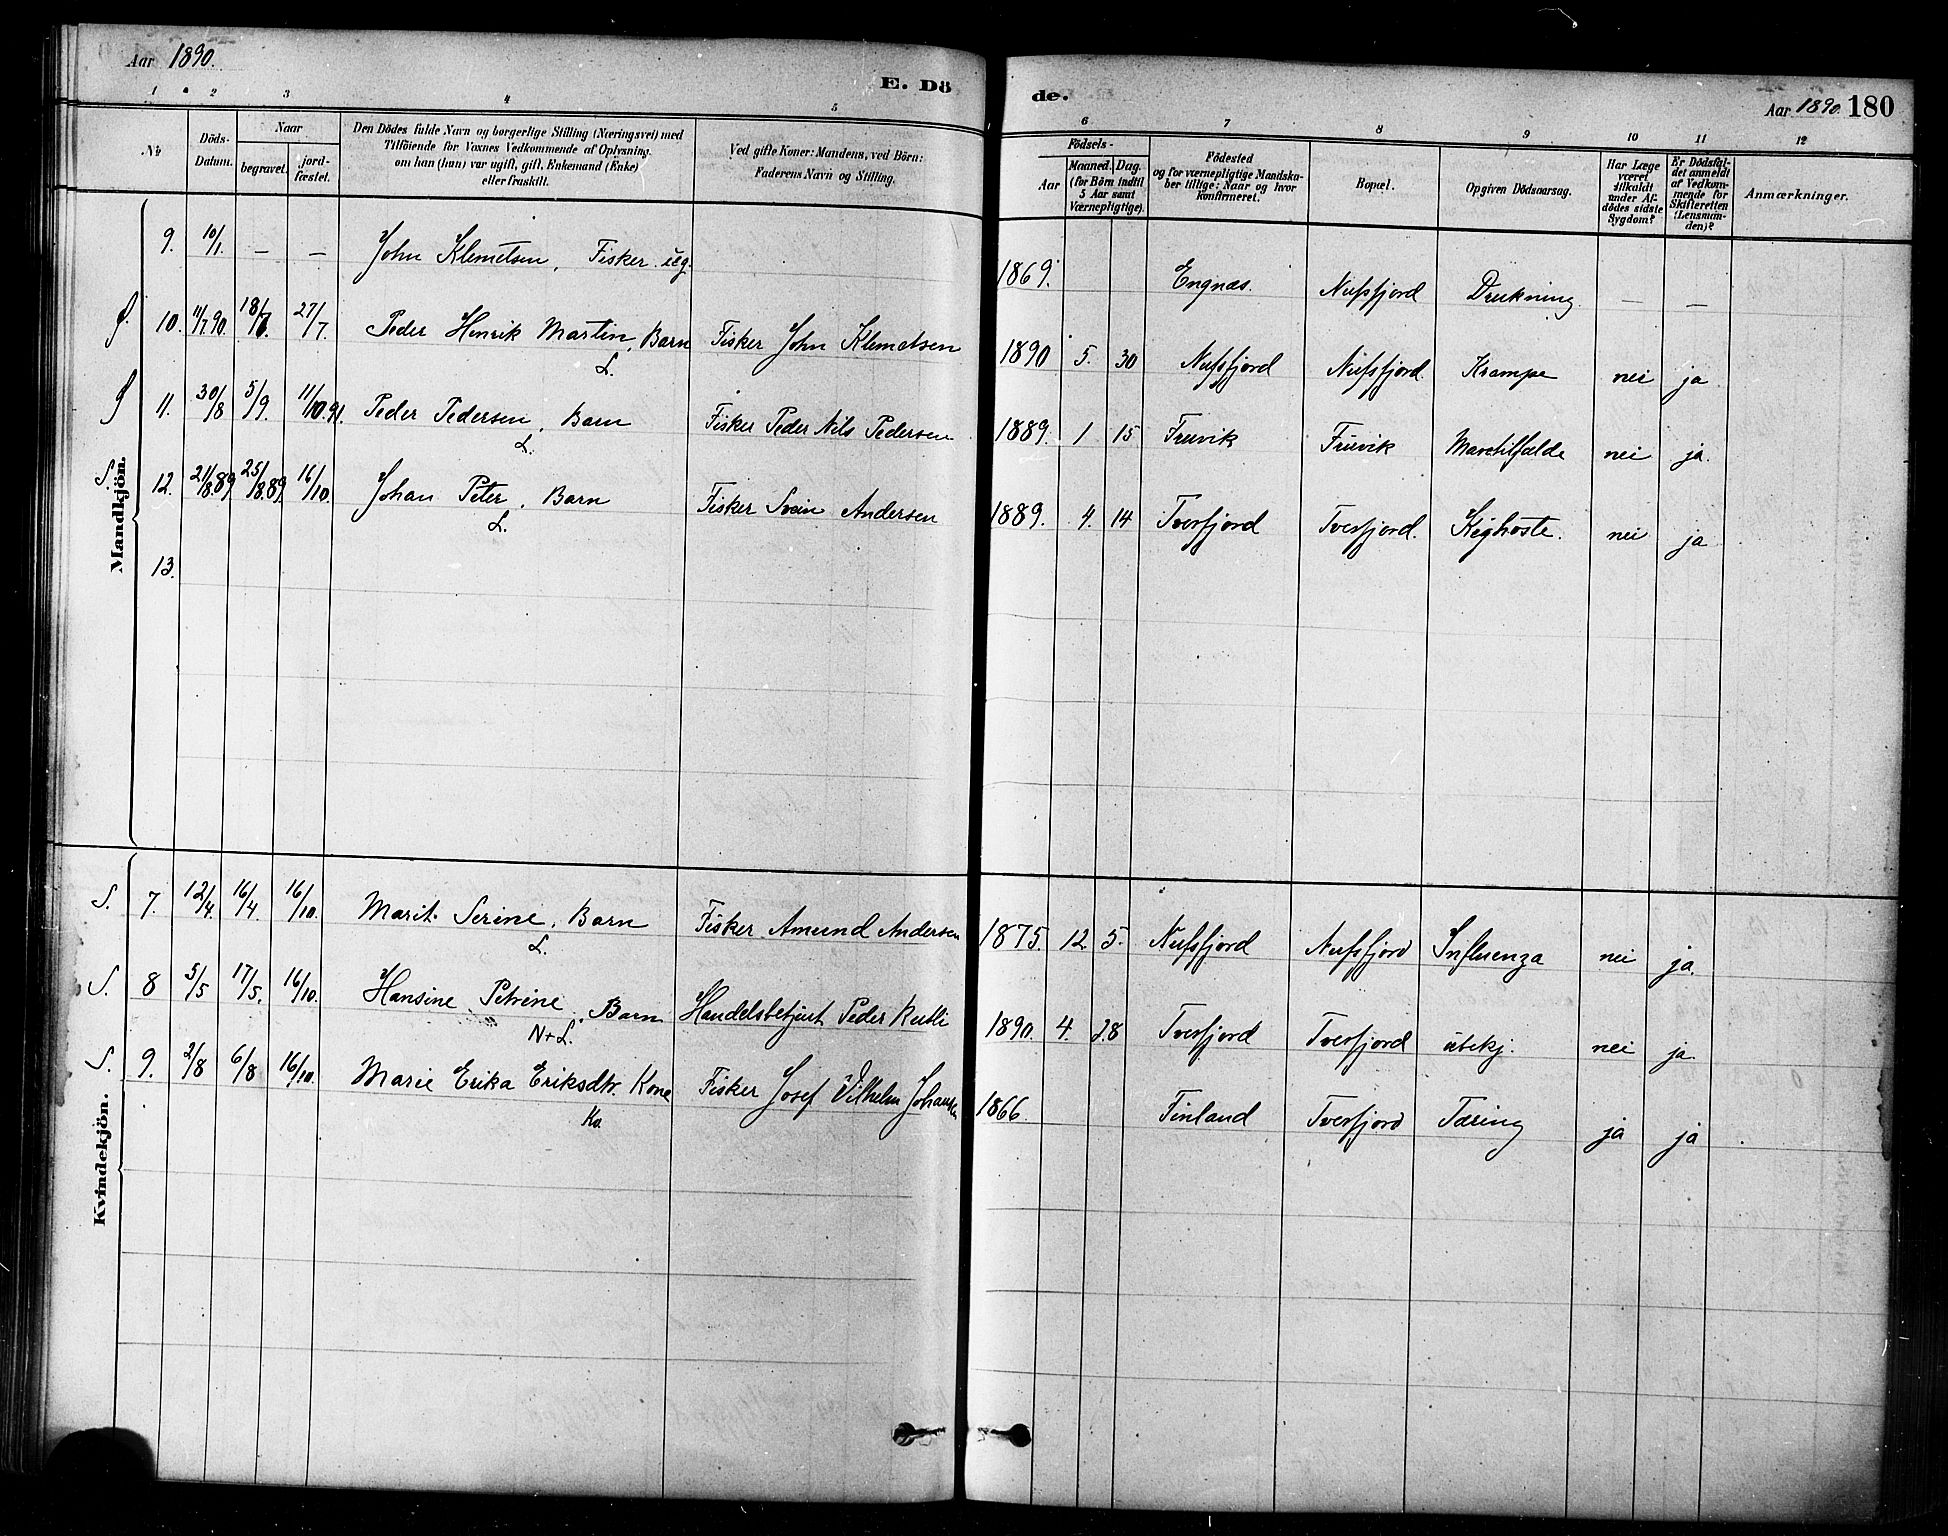 Aar 1890.
E. Dö
de.
Aar 1890. 180
1 2 3 4 5
6 7 8 9 10 11 12
No
Döds-Datum.
Naar
begravet.
jord-fæstet.
Den Dödes fulde Navn og borgerlige Stilling (Næringsvei) med
Tilföiende for Voxnes Vedkommende af Oplysning,
om han (hun) var ugift, gift, Enkemand (Enke)
eller fraskilt.
Ved gifte Koner: Mandens, ved Börn:
Faderens Navn og Stilling.
Födsels-
Aar
Maaned. Dag.
(for Börn indtil
5 Aar samt
Værnepligtige).
Födested
og for værnepligtige Mandska-
ber tillige: Naar og hvor
konfirmeret.
Bopæl.
Opgiven Dödsaarsag.
Har Læge
været
tilkaldt
under Af-
dödes sidste
Sygdom?
Er Dödsfal-
det anmeldt
af Vedkom-
mende for
Skifteretten
(Lensman-
den)?
Anmærkninger.
Mandkjön.
9. 10/1. — — John Klemetsen, Fisker ug. 1869. Engnæs. Nufsfjord Drukning — —
10. 11/7 90. 18/7. 27/7 Peder Henrik Martin, Barn Fisker John Klemetsen 1890 5. 30 Nufsfjord Nufsfjord Krampe nei ja
L.
11. 30/8 5/9. 11/10.91. Peder Pedersen, Barn Fisker Peder Nils Pedersen 1889. 1 15 Fruvik Fruvik Mavetilfælde nei ja.
L.
S. 12. 21/8.89 25/8.89. 16/10. Johan Peter, Barn Fisker Svein Andersen 1889. 4. 14 Tverfjord Tverfjord. Kighoste. nei ja
L.
13.
Kvindekjön.
S. 7. 12/4. 16/4 16/10. Marit Serine, Barn Fisker Amund Andersen 1875. 12. 5. Nufsfjord Nufsfjord Influenza nei ja.
L.
S. 8 5/5 17/5. 16/10. Hansine Petrine, Barn Handelsbetjent Peder 1890. 4. 28 Tverfjord Tverfjord ubekj. nei ja
N+L.
S. 9. 2/8 6/8 16/10. Marie Erika Eriksdtr. Kone Fisker Josef Vilhelm Johansen 1866. Finland Tverfjord Tæring ja ja
Kv.